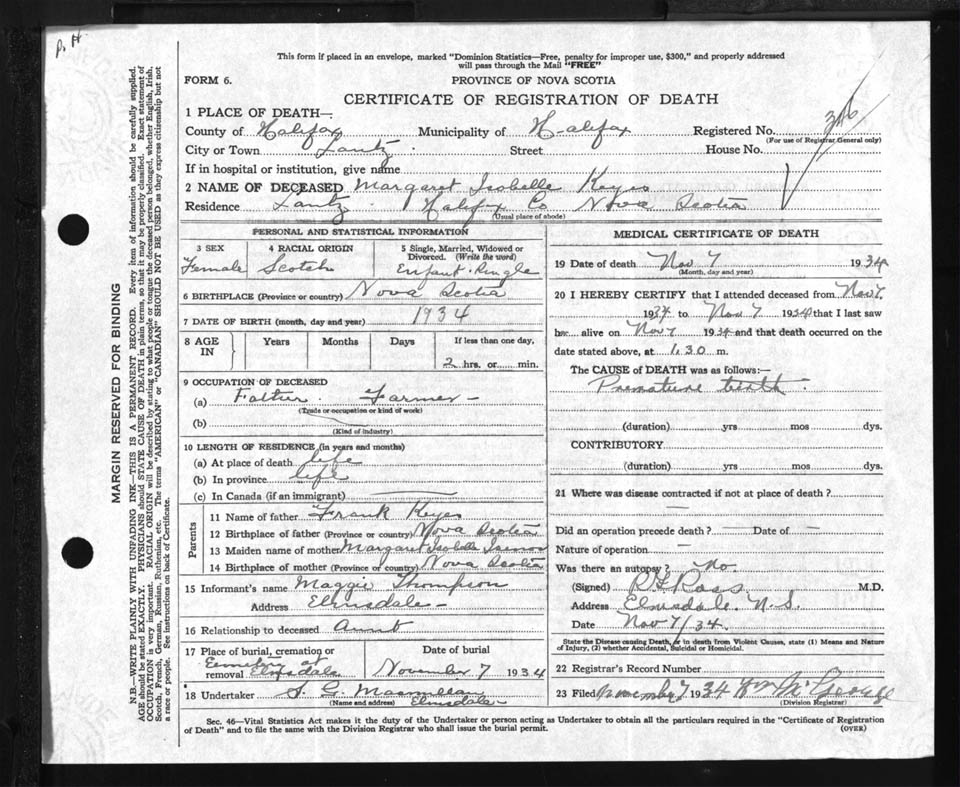 P. H.
This form if placed in an envelope, marked "Dominion Statistics—Free, penalty for improper use, $300," and properly addressed
will pass through the Mail "FREE"
FORM 6.
PROVINCE OF NOVA SCOTIA
CERTIFICATE OF REGISTRATION OF DEATH
1 PLACE OF DEATH—
County of Halifax Municipality of Halifax Registered No.
(For use of Registrar General only)
City or Town Lantz Street House No.
If in hospital or institution, give name
2 NAME OF DECEASED Margaret Isobelle Keyes
Residence Lantz Halifax Co Nova Scotia
(Usual place of abode)
PERSONAL AND STATISTICAL INFORMATION
3 SEX 4 RACIAL ORIGIN 5 Single, Married, Widowed or
Divorced. (Write the word)
Female Scotch Enfant Single
6 BIRTHPLACE (Province or country) Nova Scotia
7 DATE OF BIRTH (month, day and year) 1934
8 AGE IN Years Months Days If less than one day,
2 hrs. or min.
9 OCCUPATION OF DECEASED
(a) Father Farmer
(Trade or occupation or kind of work)
(b)
(Kind of industry)
10 LENGTH OF RESIDENCE (in years and months)
(a) At place of death life
(b) In province life
(c) In Canada (if an immigrant)
Parents
11 Name of father Frank Keyes
12 Birthplace of father (Province or country) Nova Scotia
13 Maiden name of mother Margaret Isobelle
14 Birthplace of mother (Province or country) Nova Scotia
15 Informant's name Maggie Thompson
Address Elmsdale
16 Relationship to deceased Aunt
17 Place of burial, cremation or
removal Cemetery at Elmsdale
Date of burial
November 7 1934
18 Undertaker S. G. Macmillan
(Name and address) Elmsdale
MEDICAL CERTIFICATE OF DEATH
19 Date of death Nov 7 1934
(Month, day and year)
20 I HEREBY CERTIFY that I attended deceased from Nov 7
1934 to Nov 7 1934 that I last saw
h alive on Nov 7 1934 and that death occurred on the
date stated above, at 1.30 m.
The CAUSE of DEATH was as follows:—
Premature birth
(duration) yrs mos dys.
CONTRIBUTORY
(duration) yrs mos dys.
21 Where was disease contracted if not at place of death?
—
Did an operation precede death? Date of —
Nature of operation —
Was there an autopsy? No
(Signed) Ross M.D.
Address Elmsdale. N.S.
Date Nov 7/34.
State the Disease causing Death, or in death from Violent Causes, state (1) Means and Nature
of Injury, (2) whether Accidental, Suicidal or Homicidal.
22 Registrar's Record Number
23 Filed November 7 1934 Wm McGeorge
(Division Registrar)
Sec. 46—Vital Statistics Act makes it the duty of the Undertaker or person acting as Undertaker to obtain all the particulars required in the "Certificate of Registration
of Death" and to file the same with the Division Registrar who shall issue the burial permit. (OVER)
MARGIN RESERVED FOR BINDING
N.B.—WRITE PLAINLY WITH UNFADING INK—THIS IS A PERMANENT RECORD. Every item of information should be carefully supplied.
AGE should be stated EXACTLY. PHYSICIANS should STATE CAUSE OF DEATH in plain terms, so that it may be properly classified. Exact statement of
OCCUPATION is very important. RACIAL ORIGIN will be described by stating to what people or tongue the deceased person belonged, whether English, Irish,
Scotch, French, German, Russian, Ruthenian, etc. The terms "AMERICAN" or "CANADIAN" SHOULD NOT BE USED as they express citizenship but not
a race or people. See instructions on back of Certificate.